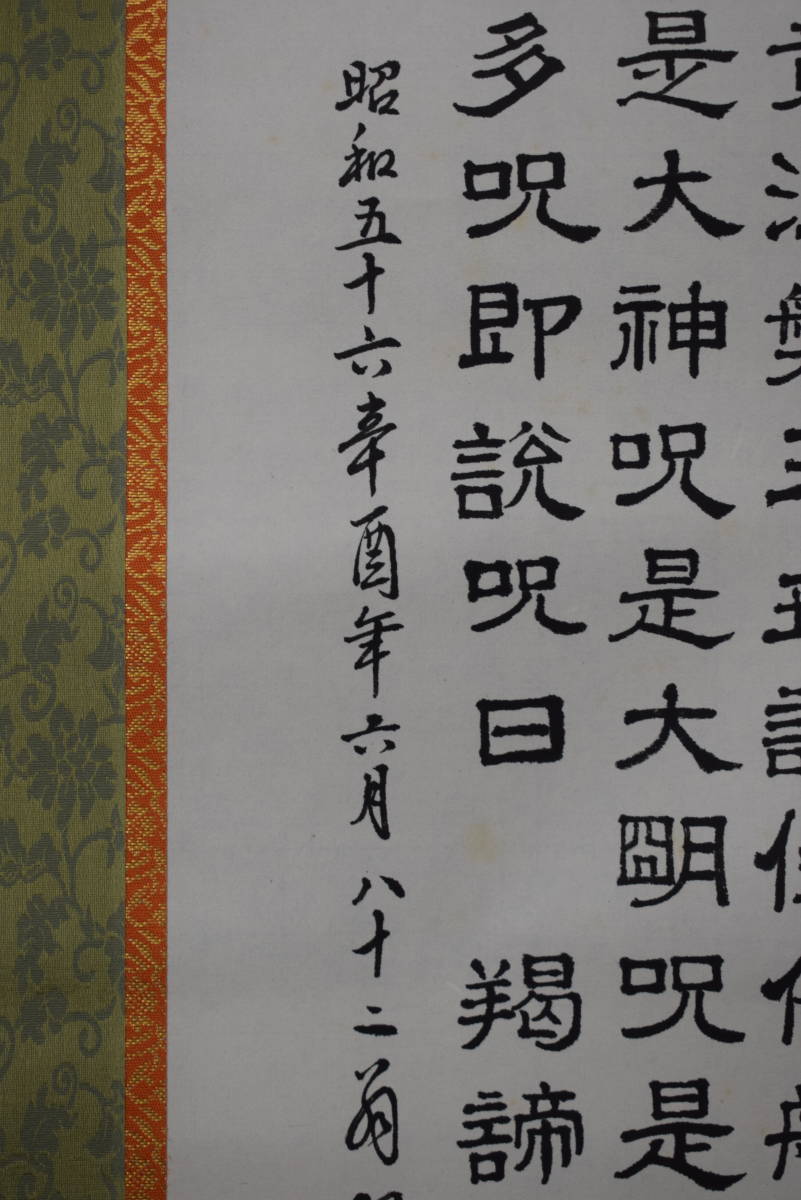 是大神呪是大明呪是
多呪即説呪曰 羯諦
昭和五十六辛酉年六月 八十二翁